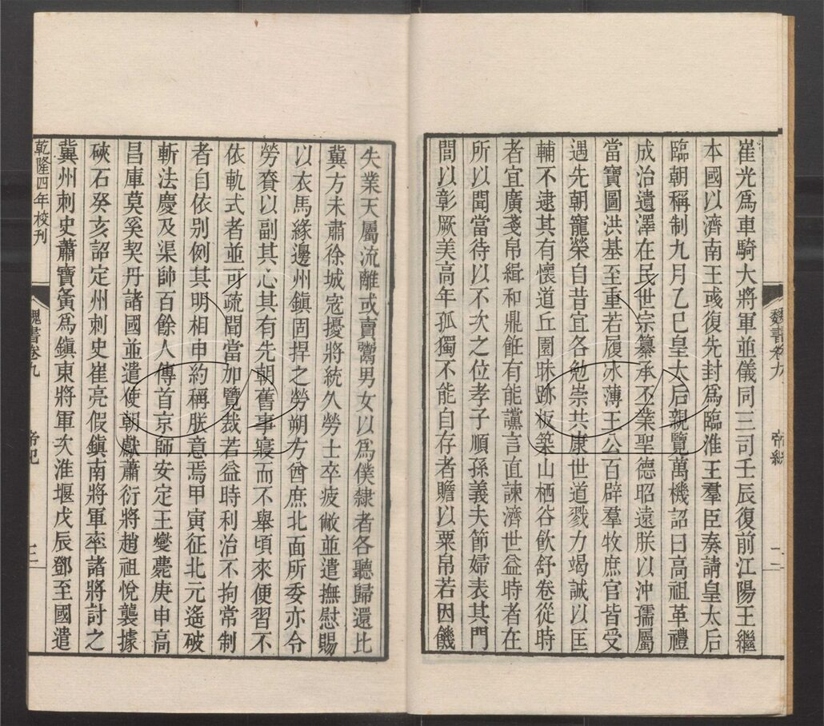 崔光爲車騎大將軍並儀同三司壬辰復前江陽王繼
本國以濟南王彧復先封爲臨淮王羣臣奏請皇太后
臨朝稱制九月乙巳皇太后親覽萬機詔曰高祖革禮
成治遺澤在民世宗纂承丕業聖德昭遠朕以沖孺屬
當寶圖洪基至重若履冰薄王公百辟羣牧庶官皆受
遇先朝寵榮自昔宜各勉崇共康世道戮力竭誠以匡
輔不逮其有懷道丘園昧跡板築山栖谷飲舒卷從時
者宜廣戔帛緝和鼎飪有能讜言直諫濟世益時者在
所以聞當待以不次之位孝子順孫義夫節婦表其門
閭以彰厥美高年孤獨不能自存者贍以粟帛若因饑
失業天屬流離或賣鬻男女以爲僕隸者各聽歸還比
冀方未肅徐城寇擾將統久勞士卒疲敝並遣撫慰賜
以衣馬緣邊州鎮固捍之勞朔方酋庶北面所委亦令
勞賚以副其心其有先朝舊事寢而不舉頃來便習不
依軌式者並可疏聞當加覽裁若益時利治不拘常制
者自依別例其明相申約稱朕意焉甲寅征北元遙破
斬法慶及渠帥百餘人傳首京師安定王燮薨庚申高
昌庫莫奚契丹諸國並遣使朝獻蕭衍將趙祖悅襲據
硤石癸亥詔定州刺史崔亮假鎮南將軍率諸將討之
冀州刺史蕭寶夤爲鎮東將軍次淮堰戊辰鄧至國遣
乾隆四年校刊
魏書卷九
帝紀
三